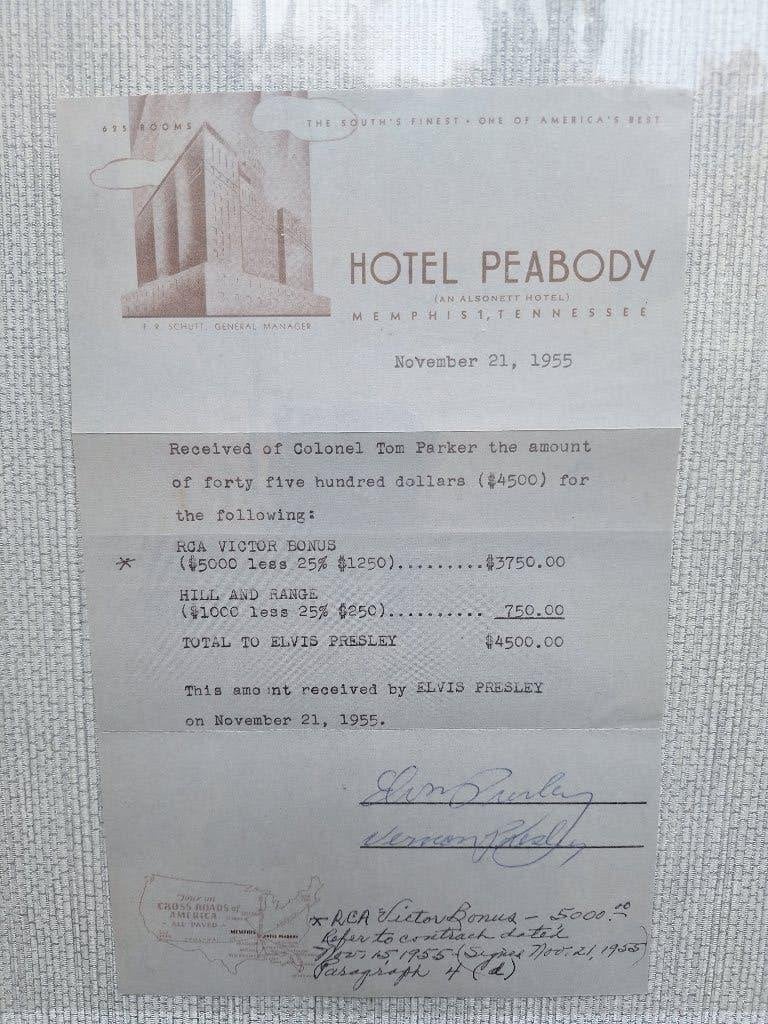 625 ROOMS
THE SOUTH'S FINEST • ONE OF AMERICA'S BEST
HOTEL PEABODY
(AN ALSONETT HOTEL)
MEMPHIS 1, TENNESSEE
F. R. SCHUTT, GENERAL MANAGER
November 21, 1955
Received of Colonel Tom Parker the amount
of forty five hundred dollars ($4500) for
the following:
RCA VICTOR BONUS
* ($5000 less 25% $1250).........$3750.00
HILL AND RANGE
($1000 less 25% $250).......... 750.00
TOTAL TO ELVIS PRESLEY $4500.00
This amo nt received by ELVIS PRESLEY
on November 21, 1955.
Elvis Presley
Vernon Presley
Tour on
CROSS ROADS of
AMERICA
ALL PAVED
MEMPHIS
HOTEL PEABODY
* RCA Victor Bonus – 5000.00
Refer to contract dated
Nov. 15, 1955 (Signed Nov. 21, 1955)
Paragraph 4 (d)